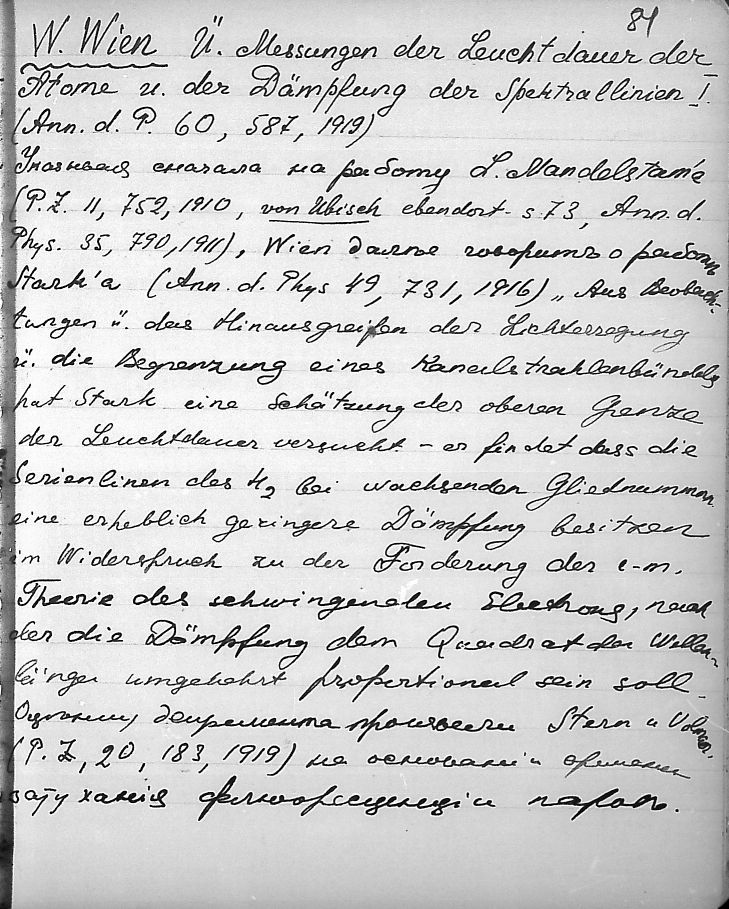 84
W. Wien Ü. Messungen der Leuchtdauer der
Atome u. der Dämpfung der Spektrallinien I.
(Ann. d. P. 60, 587, 1919)
Указывая сначала на работу L. Mandelstam'a
(P. Z. 11, 752, 1910, von Ubisch ebendort s 73, Ann. d.
Phys. 35, 790, 1911), Wien далѣе говоритъ о работѣ
Stark'a (Ann. d. Phys 49, 731, 1916) „Aus Beobach-
tungen ü. das Hinausgreifen der Lichterregung
ü. die Begrenzung eines Kanalstrahlenbündels
hat Stark eine Schätzung der oberen Grenze
der Leuchtdauer versucht – er findet dass die
Serienlinen des H2 bei wachsenden Gliednummern
eine erheblich geringere Dämpfung besitzen
im Widerspruch zu der Forderung der e-m.
Theorie des schwingenden Electrons, nach
der die Dämpfung dem Quadrat der Wellen-
länge umgekehrt proportional sein soll.
Оцѣнку декремента произвели Stern и Volmer
(P. Z, 20, 183, 1919) на основаніи времени
затуханія флюоресценціи паровъ.